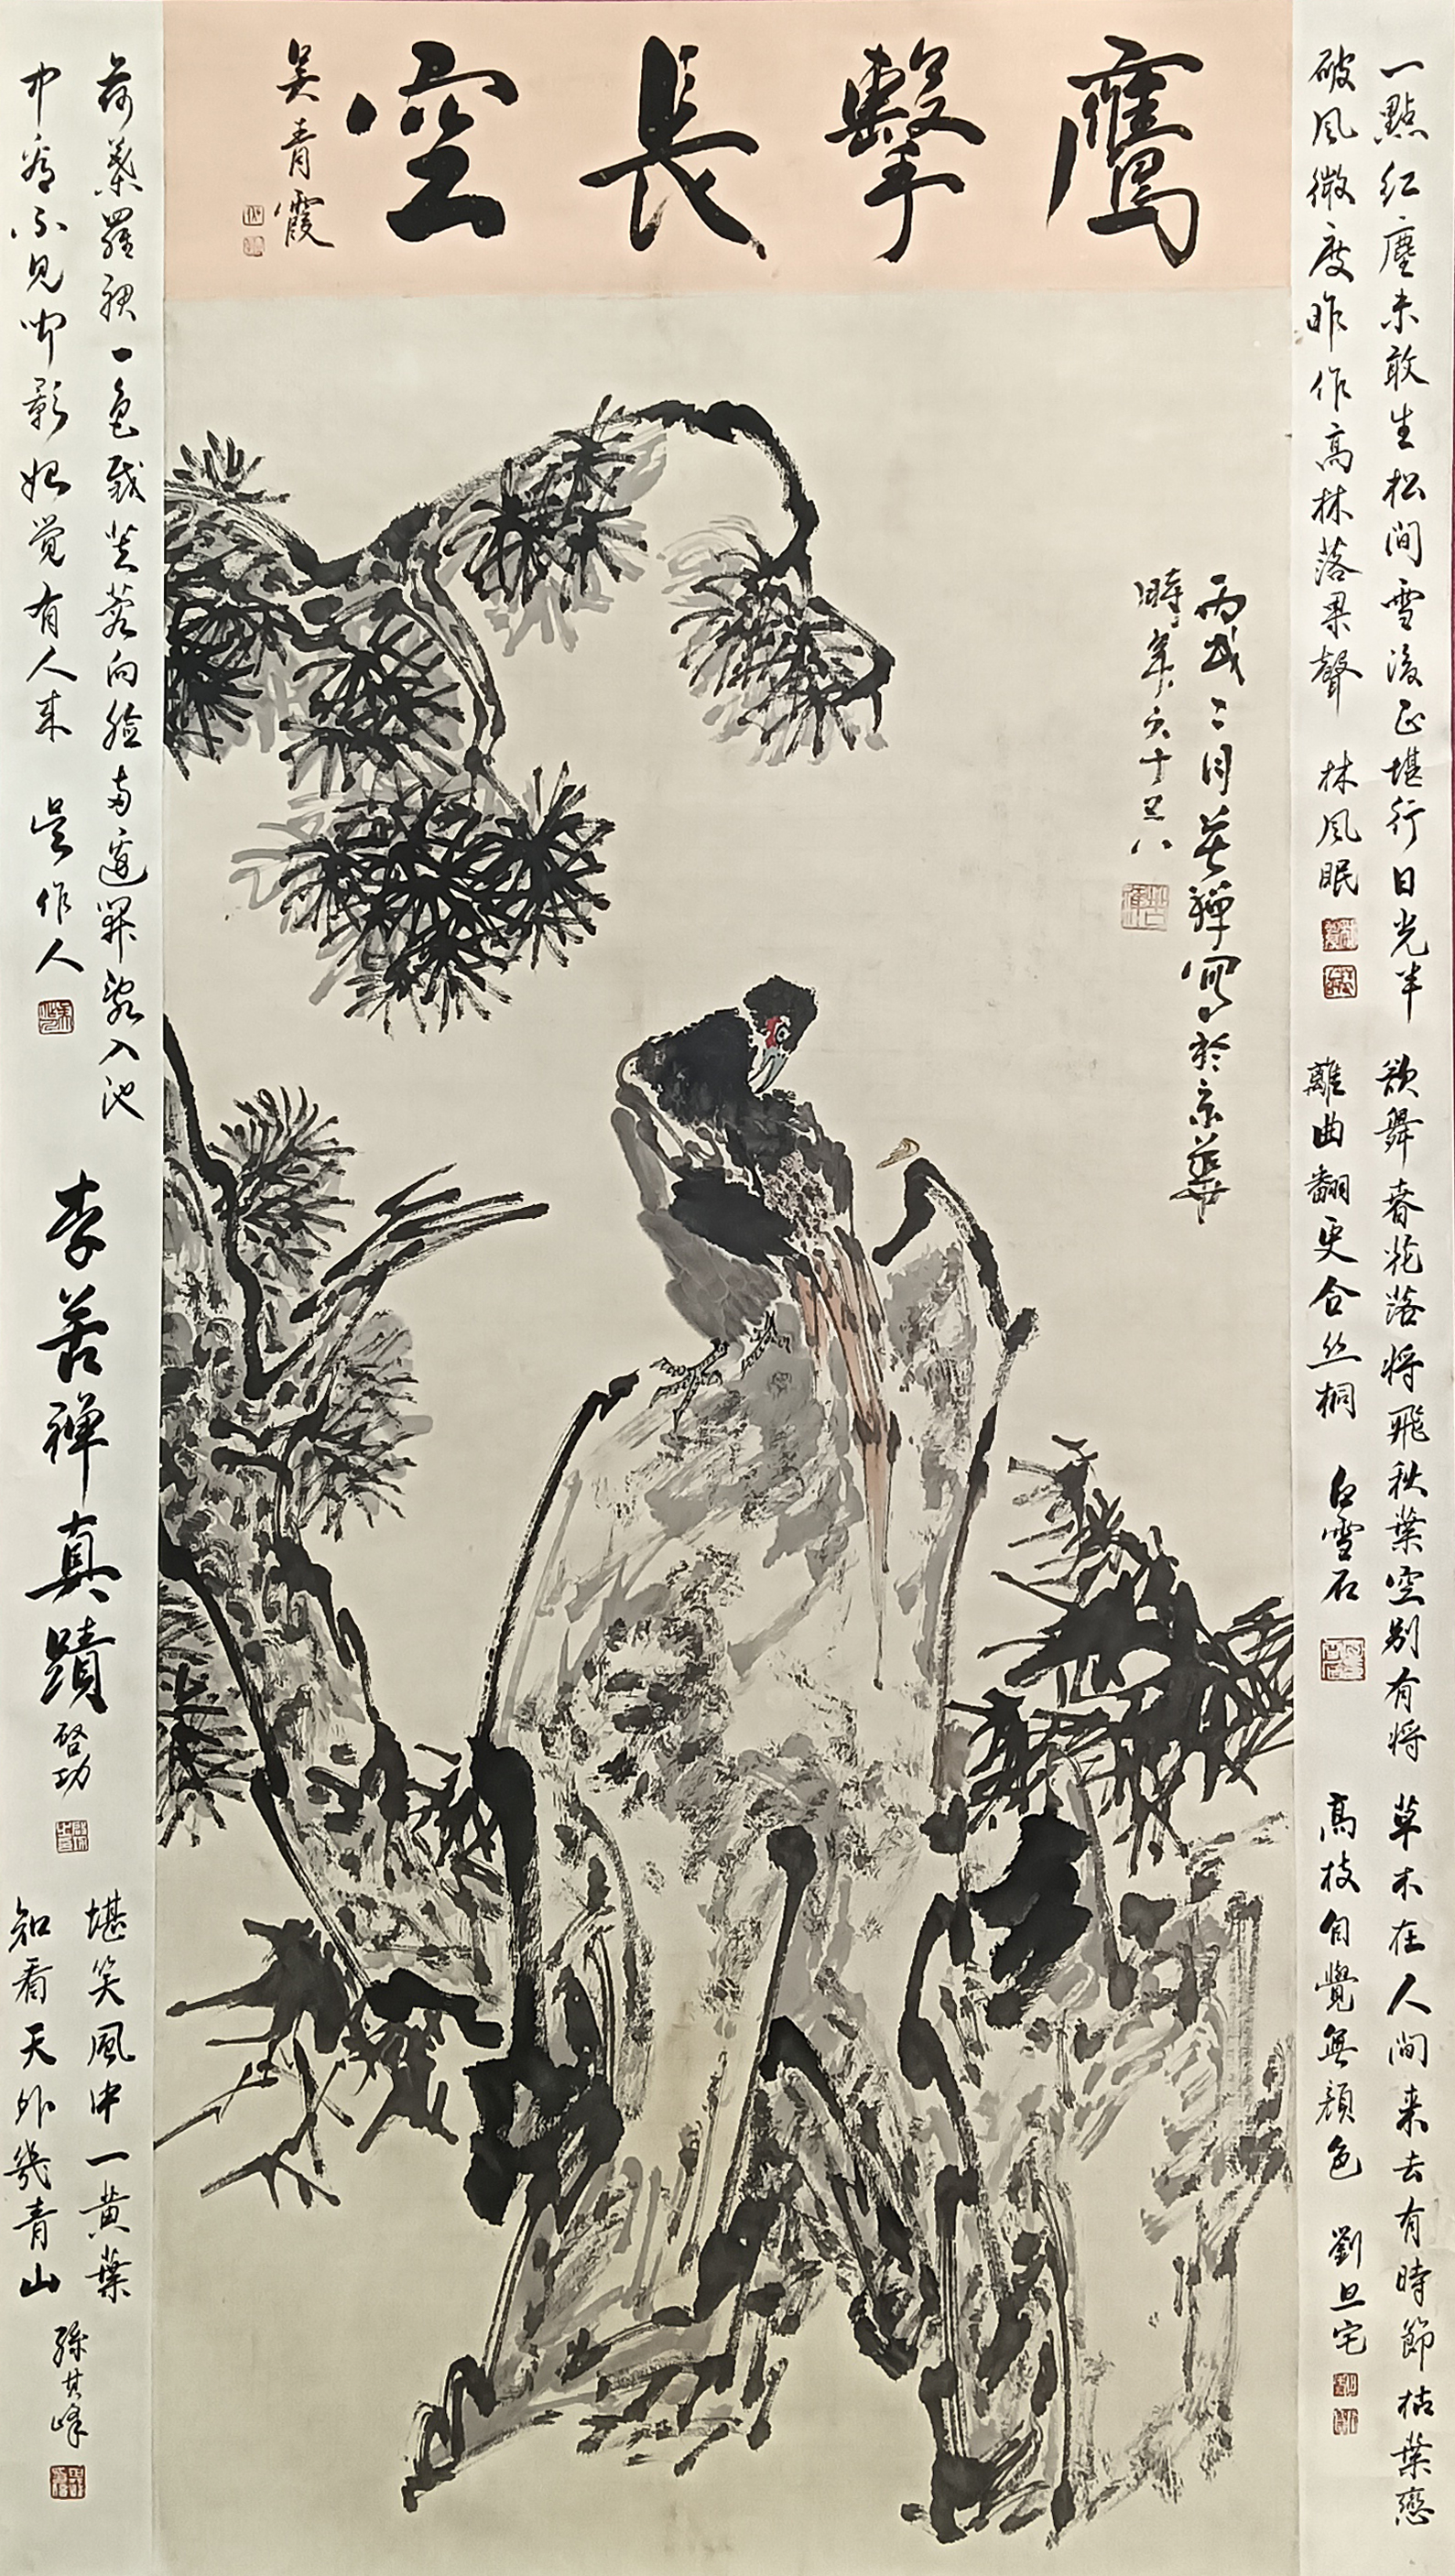 鷹擊長空
吴青霞
丙戌二月苦禪寫於京華
時年六十又八
一點紅塵未敢生松間雪後正堪行日光半
破风微度昨作高林落果聲 林风眠
欲舞春花落将飛秋葉空别有将
離曲翻更合丝桐 白雪石
草木在人间来去有時節枯葉戀
高枝自覺無顔色 劉旦宅
荷葉羅裙一色裁芙蓉向脸两邊開亂入池
中看不见闻歌始觉有人来 吴作人
李苦禅真蹟
啓功
堪笑風中一黄葉
知看天外幾青山
孫其峰